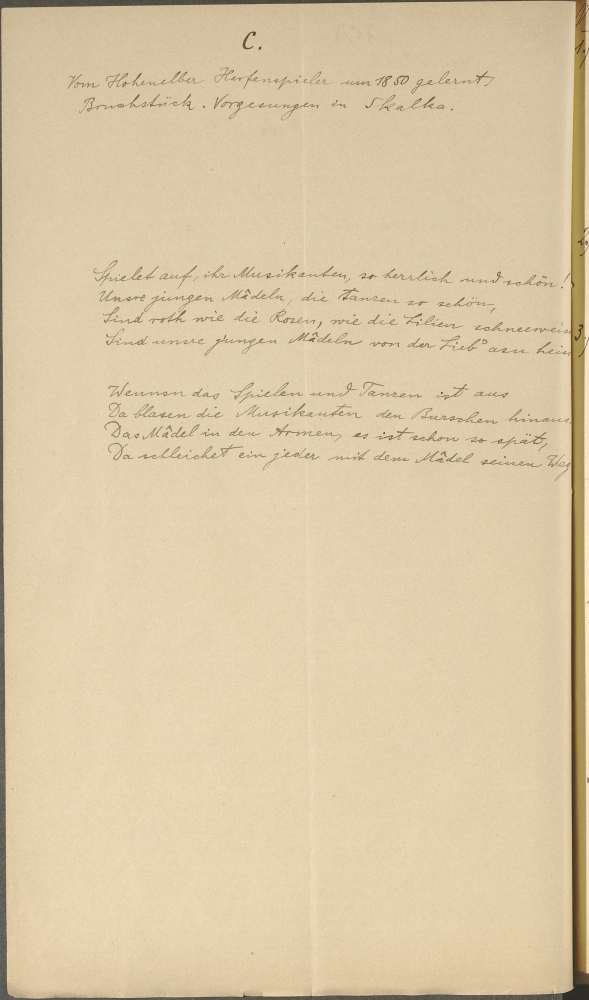 C.
Vom Hohenelber Harfenspieler um 1850 gelernt,
Bruchstück. Vorgesungen in Skalka.
Spielet auf, ihr Musikanten, so herrlich und schön!
Unsre jungen Mädeln, die tanzen so schön,
Sind roth wie die Rosen, wie die Lilien schneeweis
Sind unsre jungen Mädeln von der Lieb' asu heis
Wennsn das Spielen und Tanzen ist aus
Da blasen die Musikanten den Burschen hinaus
Das Mädel in den Armen, es ist schon so spät,
Da schleichet ein jeder mit dem Mädel seinen Weg
1.)
2.)
3.)